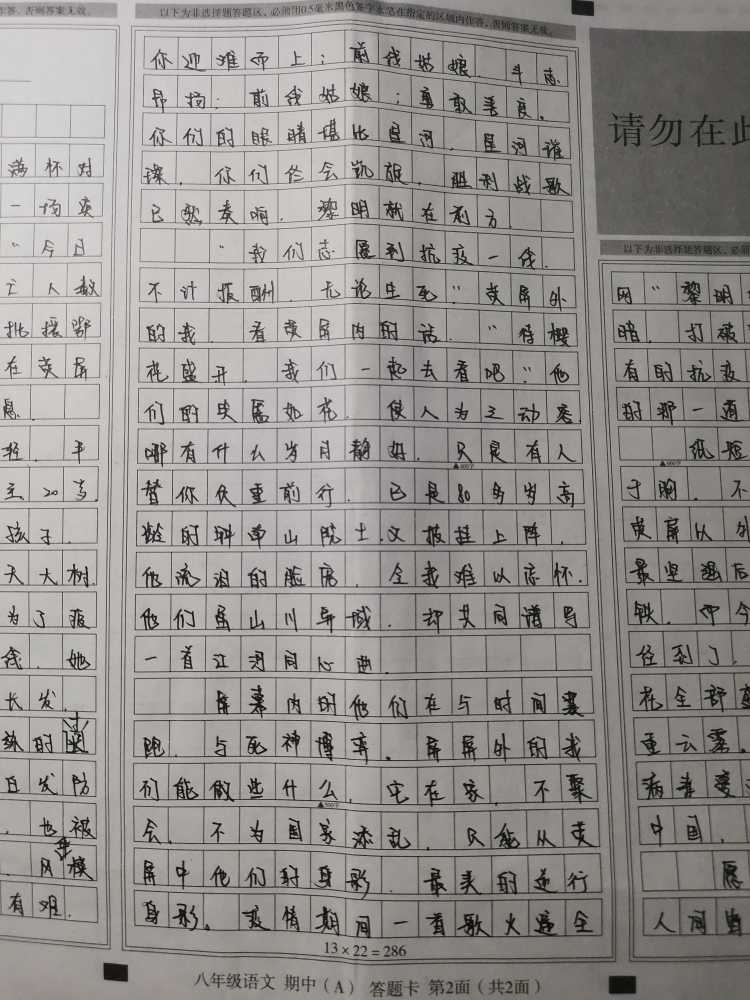 作答、否则答案无效。
满杯对
一场突
“今日
亡人数
批援鄂
在荧屏
愿.
轻.平
主20岁.
孩子.
天大树.
为了疫
线.她
长发.
练的
白发防
.也被
.风
有难.
以下为非选择题答题区,必须用0.5毫米黑色签字笔在指定的区域内作答,否则答案无效。
你迎难而上;前线姑娘.斗志
昂扬;前线姑娘;勇敢善良.
你们的眼睛堪比星河.星河谁
璨.你们终会凯旋.胜利战歌
已歌奏响.黎明就在前方.
“我们志愿到抗疫一线.
不计报酬.无论生死”荧屏外
的我.看荧屏内的话.“待樱
花盛开.我们一起去看吧”他
们的笑靥如花.使人为之动容.
哪有什么岁月静好.只是有人
替你负重前行.已是80多岁高
▲600字
龄的钟南山院士.又披挂上阵.
他流泪的脸庞.令我难以忘怀.
他们虽山川异域.却共同谱写
一首江河同心曲.
屏幕内的他们在与时间赛
跑.与死神博弈.屏屏外的我
们能做些什么.宅在家.不聚
▲500字
会.不为国家添乱.只能从荧
屏中他们的身影.最美的逆行
身影。疫情期间一首歌火遍全
13×22=286
请勿在此
以下为非选择题答题区,必须
网“黎明
暗.打破
有的抗疫
的那一道
纸短
▲800字
于胸.不
荧屏以外
最坚强后
铁.
径到了.
花全部
重云雾.
病毒
中国.
愿
人间皆
八年级语文 期中(A) 答题卡 第2面(共2面)